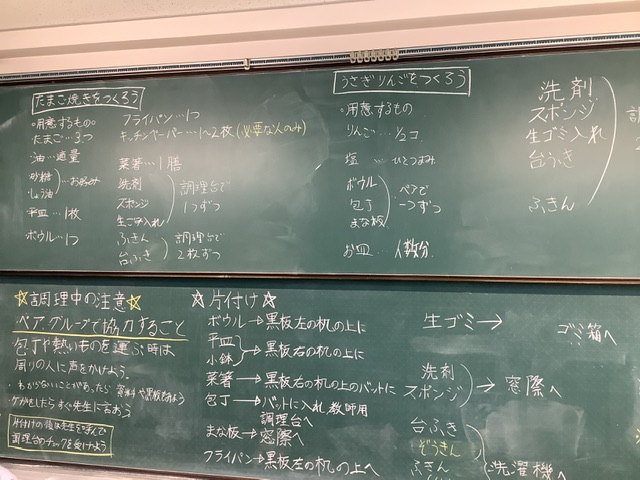 たまご焼きをつくろう
○用意するもの○
たまご…3つ
油…適量
砂糖
しょう油
…お好み
平皿…1枚
ボウル…1つ
フライパン…1つ
キッチンペーパー…1〜2枚(必要な人のみ)
菜箸…1膳
洗剤
スポンジ
生ごみ入れ
調理台で
1つずつ
ふきん
台ふき
調理台で
2枚ずつ
うさぎりんごをつくろう
○用意するもの
りんご…1/2コ
塩…ひとつまみ
ボウル
包丁
まな板
ペアで
一つずつ
お皿…人数分
洗剤
スポンジ
生ゴミ入れ
台ふき
ふきん
☆調理中の注意☆
ペア、グループで協力すること
包丁や熱いものを運ぶ時は
周りの人に声をかけよう。
・わからないことがあったら資料や黒板を見よう
ケガをしたらすぐ先生に言おう
片付けの後は先生を呼んで
調理台のチェックを受けよう
☆片付け☆
ボウル→黒板左の机の上に
平皿
小鉢
→黒板右の机の上に
菜箸→黒板右の机の上のバットに
包丁→バットに入れ教師用
調理台へ
まな板→窓際へ
フライパン→黒板左の机の上へ
生ゴミ→ゴミ箱へ
洗剤
スポンジ
→窓際へ
台ふき
ぞうきん
ふきん
→洗濯機へ